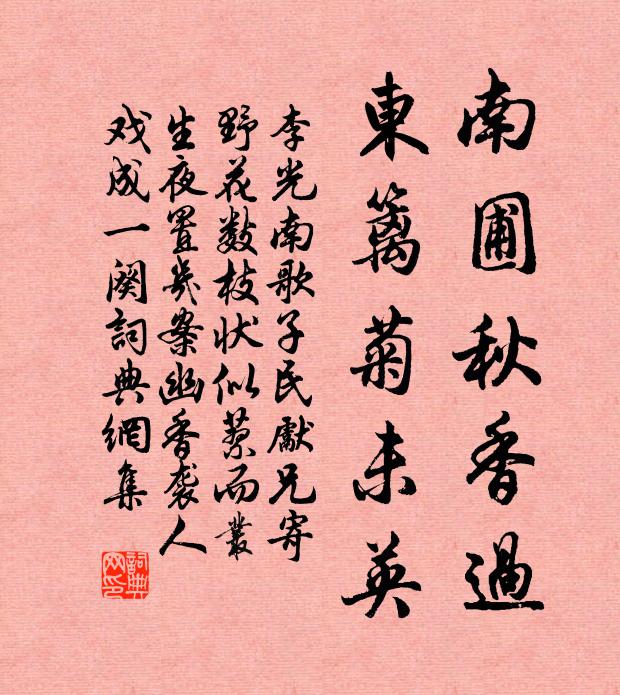 南圃秋香過
東籬菊未英
李光南歌子民獻兄寄
野花數枝狀似蓼而叢
生夜置几案幽香袭人
戏成一阕詞典網集
詞典网印